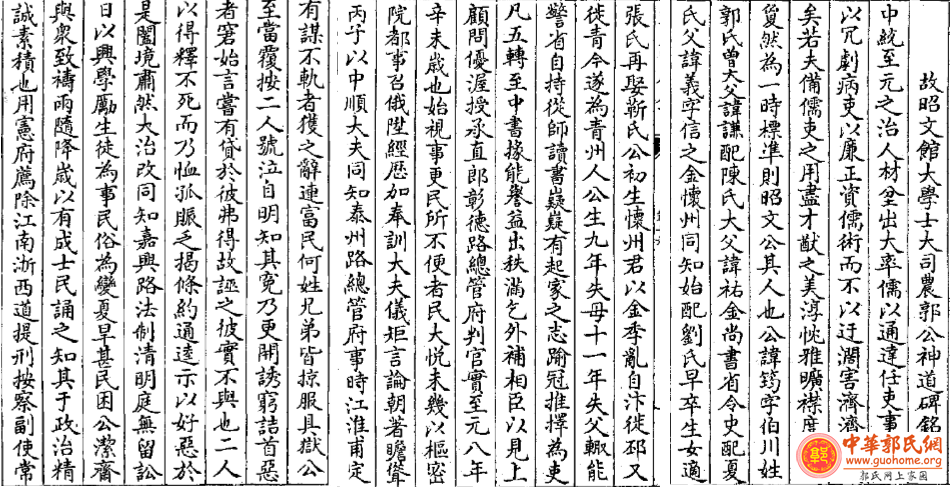 故昭文館大學士大司農郭公神道碑銘
中統至元之治人材坌出大率儒以通達任吏事
以冗劇病吏以廉正資儒術而不以迂濶害濟濟
矣若夫備儒吏之用盡才猷之美淳忱雅曠襟度
夐然為一時標準則昭文公其人也公諱筠字伯川姓
郭氏曾大父諱謙配陳氏大父諱祐金尚書省令史配夏
氏父諱義字信之金懷州同知始配劉氏早卒生女適
張氏再娶靳氏公初生懷州君以金季亂自汴徙邳又
徙青今遂為青州人公生九年失母十一年失父輙能
警省自持從師讀書嶷嶷有起家之志踰冠推擇為吏
凡五轉至中書掾能譽益出秩滿乞外補相臣以見上
顧問優渥授承直郎彰德路總管府判官實至元八年
辛未歲也始視事更民所不便者民大悦未幾以樞密
院都事召俄陞經歷加奉訓大夫儀矩言論朝著瞻聳
丙子以中順大夫同知泰州路總管府事時江淮甫定
有謀不軌者獲之辭連富民何姓兄弟皆掠服具獄公
至當覆按二人號泣自明知其寃乃更開誘窮詰首惡
者窘始言嘗有貸於彼弗得故誣之彼實不與也二人
以得釋不死而乃恤孤賑乏揭條約通逵示以好惡於
是闔境肅然大治改同知嘉興路法制清明庭無留訟
日以興學勵生徒為事民俗為變夏旱甚民困公潔齋
與衆致禱雨隨降歲以有成士民誦之知其于政治精
誠素積也用憲府薦除江南浙西道提刑按察副使常
中華郭氏網
www.guohome.org
郭氏网上家园